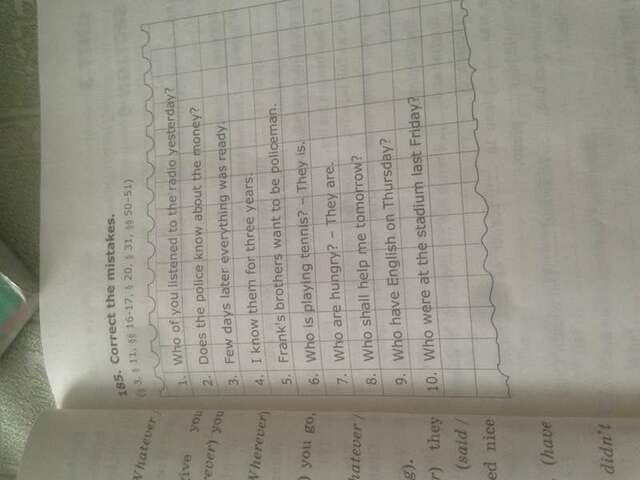 185. Correct the mistakes.
(§ 3, § 11, §§ 16-17, § 20, § 31, §§ 50-51)
Whatever /
give you
ever) you
Wherever)
) you go,
hatever /
g).
r) they
(said /
ed nice
(have
didn't
1. Who of you listened to the radio yesterday?
2. Does the police know about the money?
3. Few days later everything was ready.
4. I know them for three years.
5. Frank's brothers want to be policeman.
6. Who is playing tennis? – They is.
7. Who are hungry? – They are.
8. Who shall help me tomorrow?
9. Who have English on Thursday?
10. Who were at the stadium last Friday?